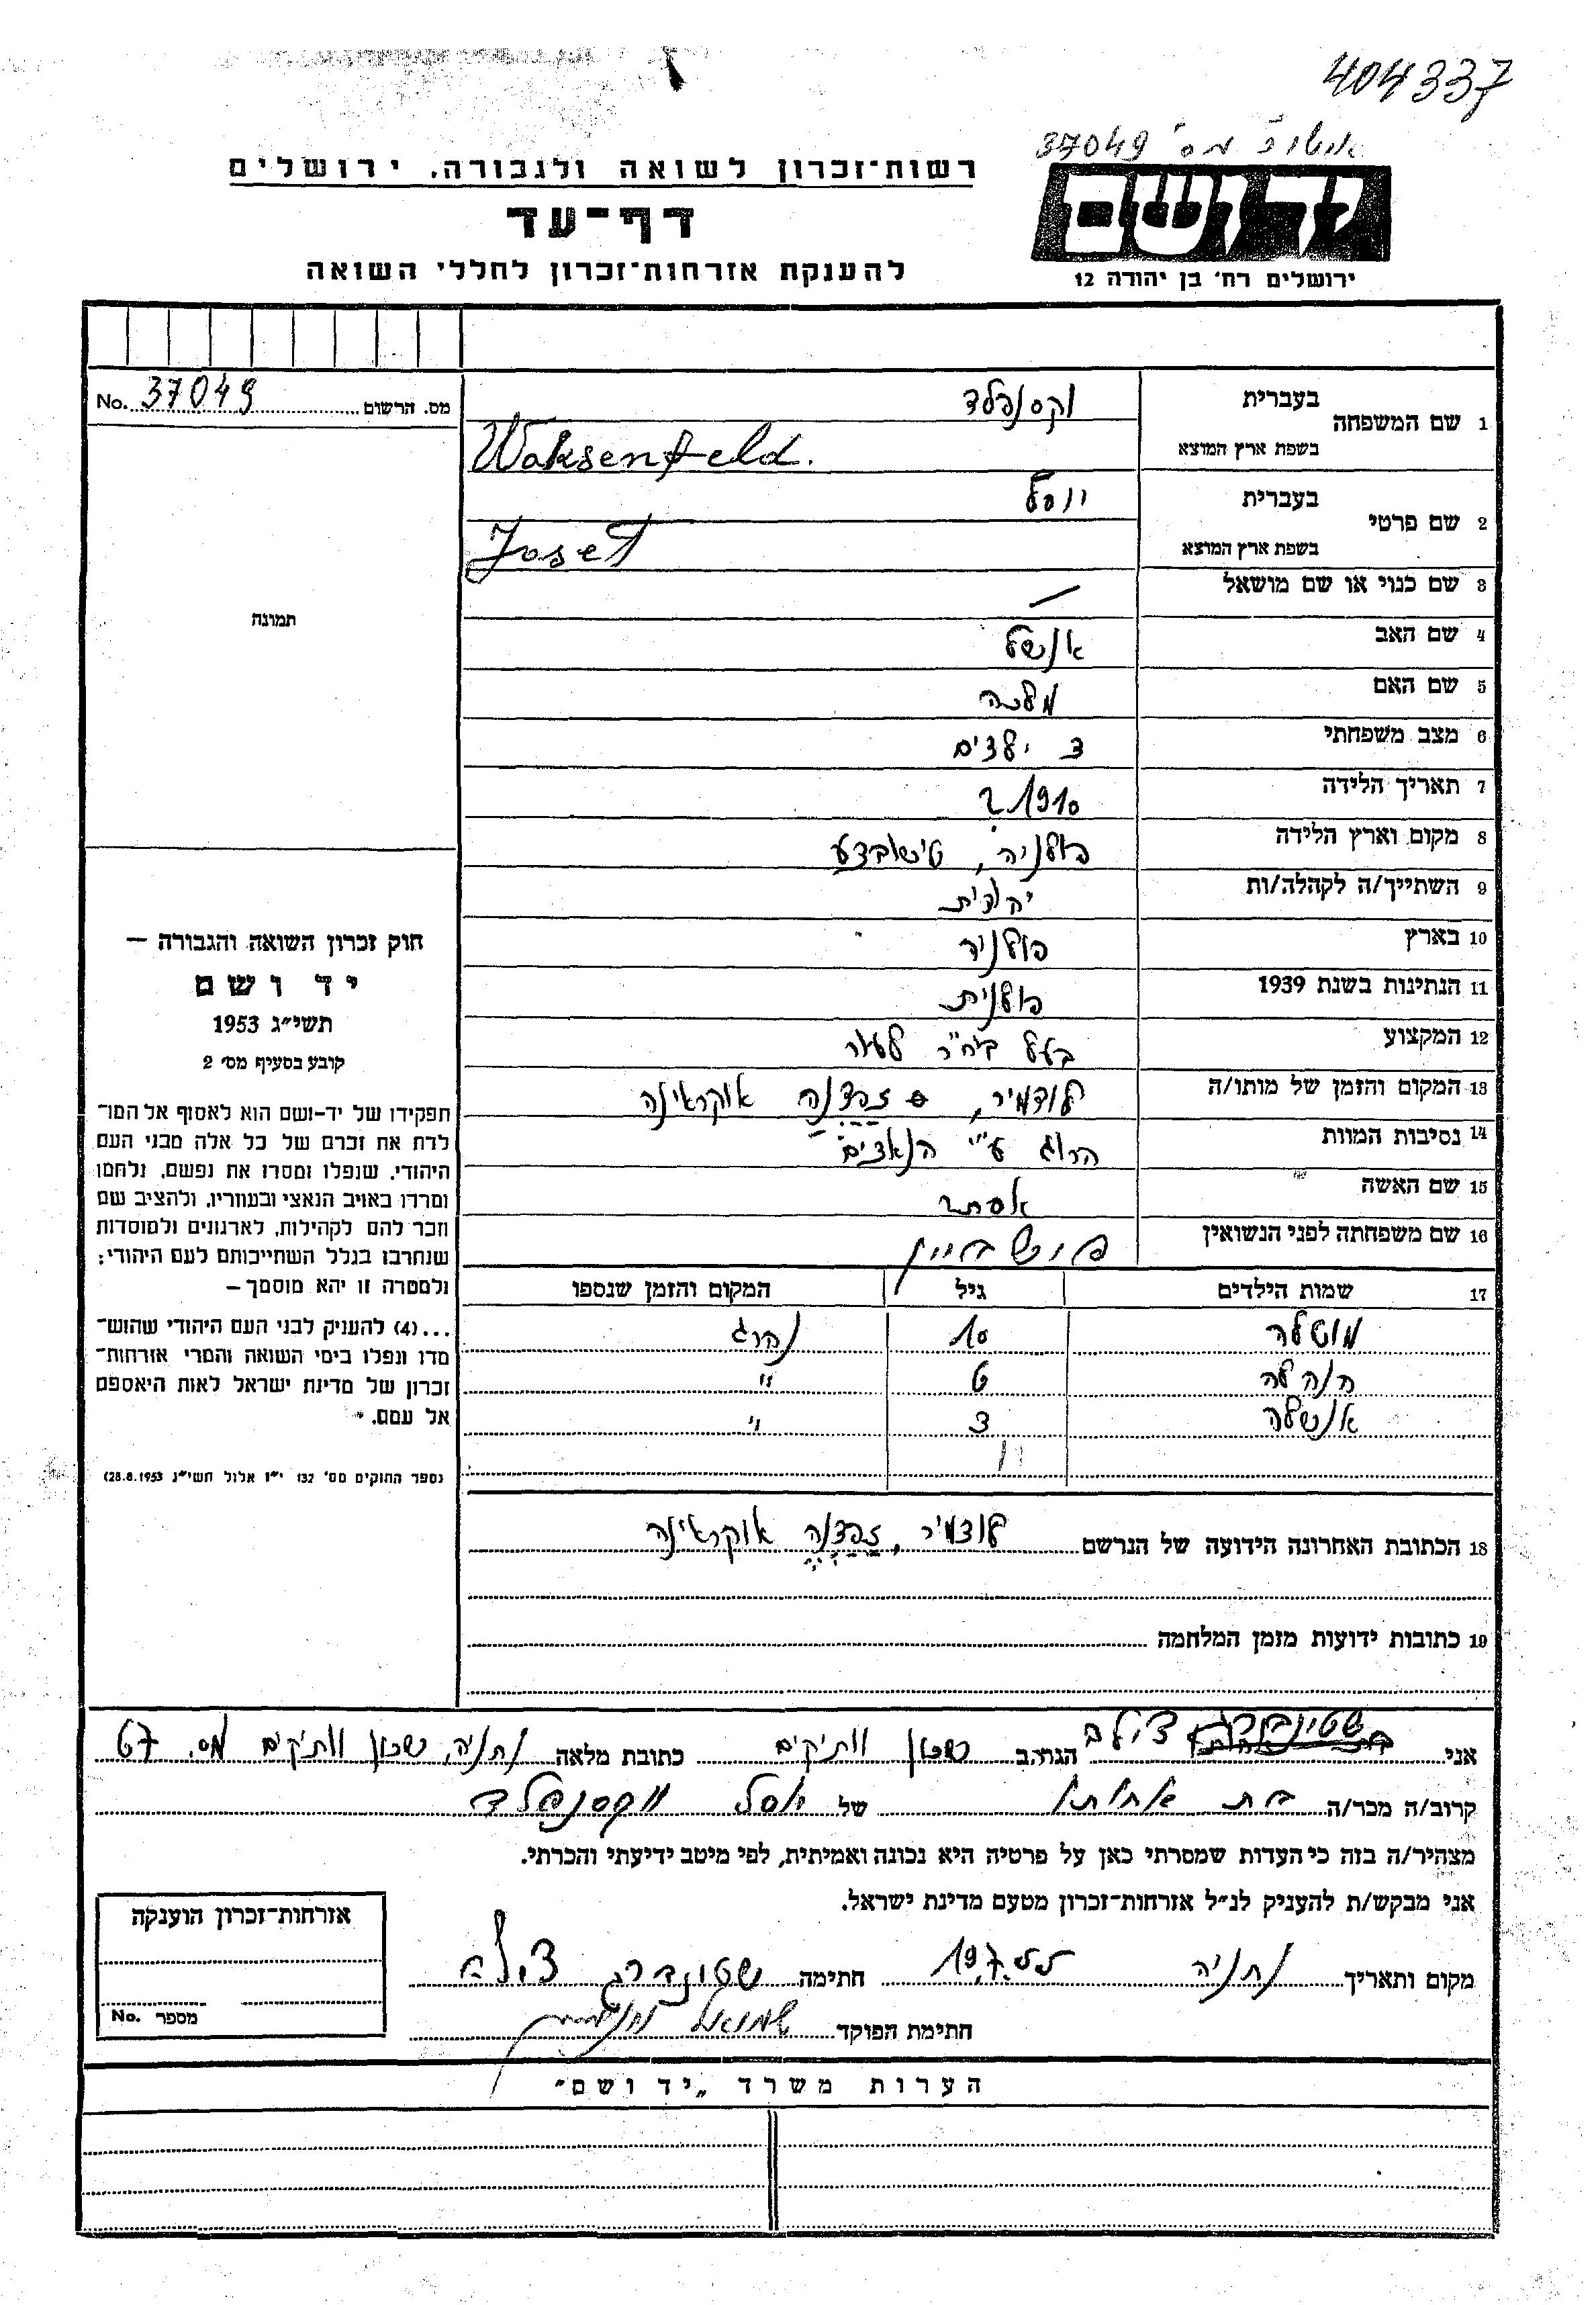 404337
אישור מס' 37049
יד ושם
ירושלים רח' בן יהודה 12
רשות-זכרון לשואה ולגבורה, ירושלים
דף-עד
להענקת אזרחות-זכרון לחללי השואה
מס. הרשום 37049 No.
1 שם המשפחה
בעברית וקסנפלד
בשפת ארץ המוצא Waksenfeld.
2 שם פרטי
בעברית יוסל
בשפת ארץ המוצא Josef
3 שם כנוי או שם מושאל –
4 שם האב אנשל
5 שם האם מלכה
6 מצב משפחתי 3 ילדים
7 תאריך הלידה 1910
8 מקום וארץ הלידה פולניה, טישובצע
9 השתייך/ה לקהלה/ות יהודית
10 בארץ פולניה
11 הנתינות בשנת 1939 פולנית
12 המקצוע בעל ביח"ר לעור
13 המקום והזמן של מותו/ה לודמיר, אוקראינה
14 נסיבות המוות הרוג ע"י הנאצים
15 שם האשה אסתר
16 שם משפחתה לפני הנשואין
17 שמות הילדים גיל המקום והזמן שנספו
מוטלה 10 נהרג
חנהלה 6 "
אנשלה 3 "
18 הכתובת האחרונה הידועה של הנרשם לודמיר, אוקראינה
19 כתובות ידועות מזמן המלחמה
תמונה
חוק זכרון השואה והגבורה –
יד ושם
תשי"ג 1953
קובע בסעיף מס' 2
תפקידו של יד-ושם הוא לאסוף אל המו־
לדת את זכרם של כל אלה מבני העם
היהודי, שנפלו ומסרו את נפשם, נלחמו
ומרדו באויב הנאצי ובעוזריו, ולהציב שם
וזכר להם לקהילות, לארגונים ולמוסדות
שנחרבו בגלל השתייכותם לעם היהודי;
ולמטרה זו יהא מוסמך –
...(4) להעניק לבני העם היהודי שהוש־
מדו ונפלו בימי השואה והמרי אזרחות־
זכרון של מדינת ישראל לאות היאספם
אל עמם."
(ספר החוקים מס' 132 י"ז אלול תשי"ג 28.8.1953)
אני שטינברג צילה הגר/ה ב שכון וותיקים כתובת מלאה נתניה, שכון וותיקים מס. 67
קרוב/ה מכר/ה בת אחותו של יוסל וקסנפלד
מצהיר/ה בזה כי העדות שמסרתי כאן על פרטיה היא נכונה ואמיתית, לפי מיטב ידיעתי והכרתי.
אני מבקש/ת להעניק לנ"ל אזרחות-זכרון מטעם מדינת ישראל.
מקום ותאריך נתניה 19.7.55 חתימה שטינברג צילה
חתימת הפוקד שמואל
אזרחות-זכרון הוענקה
מספר No.
הערות משרד „יד ושם"